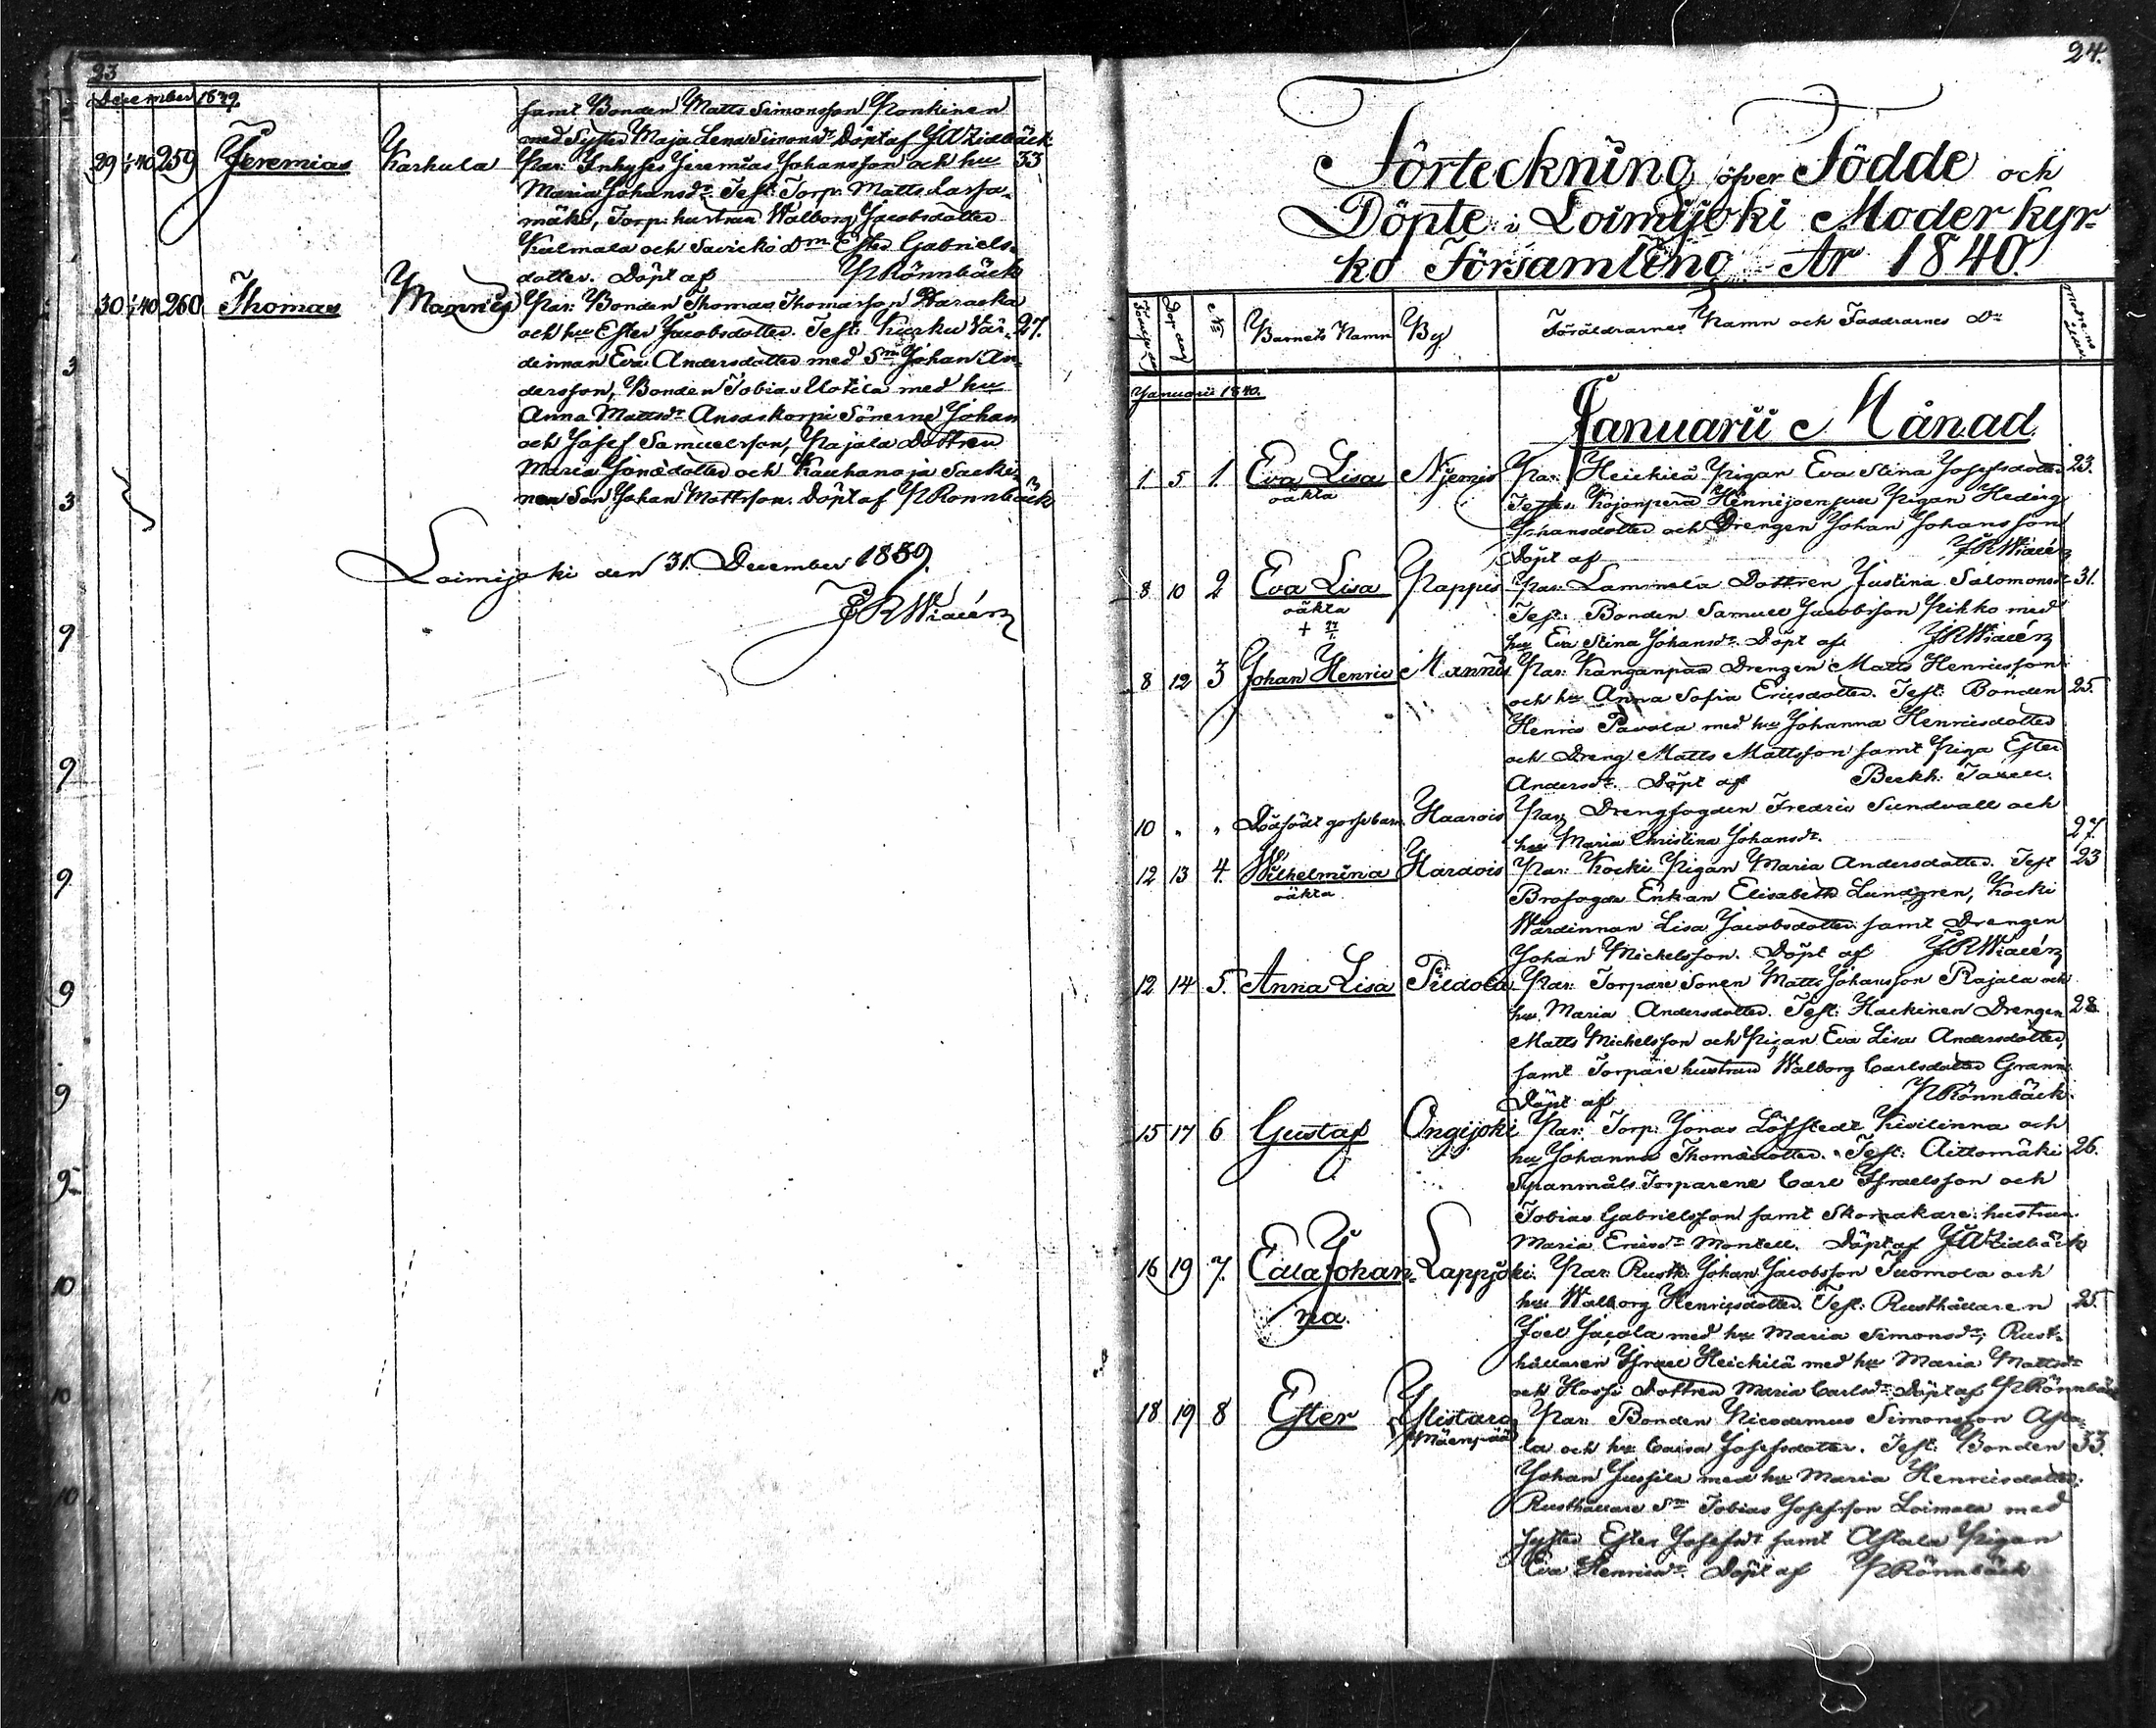 23
December 1839.
samt Bonden Matts Simonsson Ronkinen
med Syster Maja Lena Simonsdr Döpt af
29 1/40 259 Jeremias Karhula Par: Inhyses Jeremias Johansson och hu 33
Maria Johansdr Test: Torp: Matts
mäki, Torp: hustrun Walborg Jacobsdotter
Kulmala och Ester Gabriels-
dotter. Döpt af PRönnbäck
30 1/40 260 Thomas Par: Bonden Thomas Thomasson
och hu Ester Jacobsdotter. Test: Kurku Vär- 27.
dinnan Eva Andersdotter med Sm Johan An-
dersson, Bonden Tobias Uotila med hu
Anna Mattsdr Ansaskorpi Sönerne Johan
och Josef Samuelsson, Rajala Dottren
Maria och
Son Johan Mattsson. Döpt af PRönnbäck
Loimijoki den 31. December 1839.
24.
Förteckning öfver Födde och
Döpte i Loimijoki Moderkyr-
ko Församling År 1840.
No Barnets Namn By Föräldrarnes Namn och Faddrarnes Do
Januarii 1840.
Januarii Månad
1. 5 1. Eva Lisa Niemis Par: Heickilä Pigan Eva Stina Josefsdotter 23.
oäkta
Pigan Hedvig
Johansdotter och Drengen Johan Johansson
Döpt af
8 10 2 Eva Lisa Pappis Par: Dottren Justina Salomonsdr 31.
oäkta Test: Bonden Samuel Jacobsson Pikko med
hu Eva Stina Johansdr Döpt af
8 12 3 Johan Henric Mannis Par: Kanganpää Drengen Matts Henricsson
och hu Anna Sofia Ericsdotter. Test: Bonden 25.
Henric Pavola med hu Johanna Henricsdotter
och Dreng Matts Mattsson samt Piga Ester
Andersdr. Döpt af
10 " " Dödfödt gossebarn Haarois Par: Drengfogden Fredric Sundvall och
hu Maria Christina Johansdr. 27.
12 13 4. Wilhelmina Haarois Par: Kocki Pigan Maria Andersdotter. Test 23
oäkta Brofogde Enkan Elisabeth Lundgren, Kocki
Wärdinnan Lisa Jacobsdotter samt Drengen
Johan Michelsson. Döpt af
12 14 5. Anna Lisa Par: Torpare Sonen Matts Johansson Rajala och
hu Maria Andersdotter. Test: Hackinen Drengen 28
Matts Michelsson och Pigan Eva Lisa Andersdotter,
samt Torpare hustrun Walborg Carlsdotter
Döpt af PRönnbäck.
15 17 6 Gustaf Ongijoki Par: Torp: Jonas Löfstedt Kivilinna och
hu Johanna Thomasdotter. Test: Aittomäki 26.
Torparene Carl Israelsson och
Tobias Gabrielsson samt Skomakare hustrun
Maria Ericsdr Montell. Döpt af
16 19 7. Edla Johan- Lappjoki. Par: Rusth: Johan Jacobsson Tuomola och
na. hu Walborg Henricsdotter. Test: Rusthållaren 25.
Joel Jacola med hu Maria Simonsdr; Rust-
hållaren Israel Heickilä med hu Maria Mattsdr
och Dottren Maria Carlsdr. Döpt af PRönnbäck
18 19 8 Ester Ylistaro Par: Bonden Nicodemus Simonsson Asta-
Mäenpää la och hu Caisa Josefsdotter. Test: Bonden 33.
Johan Jussila med hu Maria Henricsdotter.
Rusthållare Sm Tobias Josefsson Loimala med
syster Ester Josefsdr samt Astala Pigan
Eva Henricsdr. Döpt af PRönnbäck